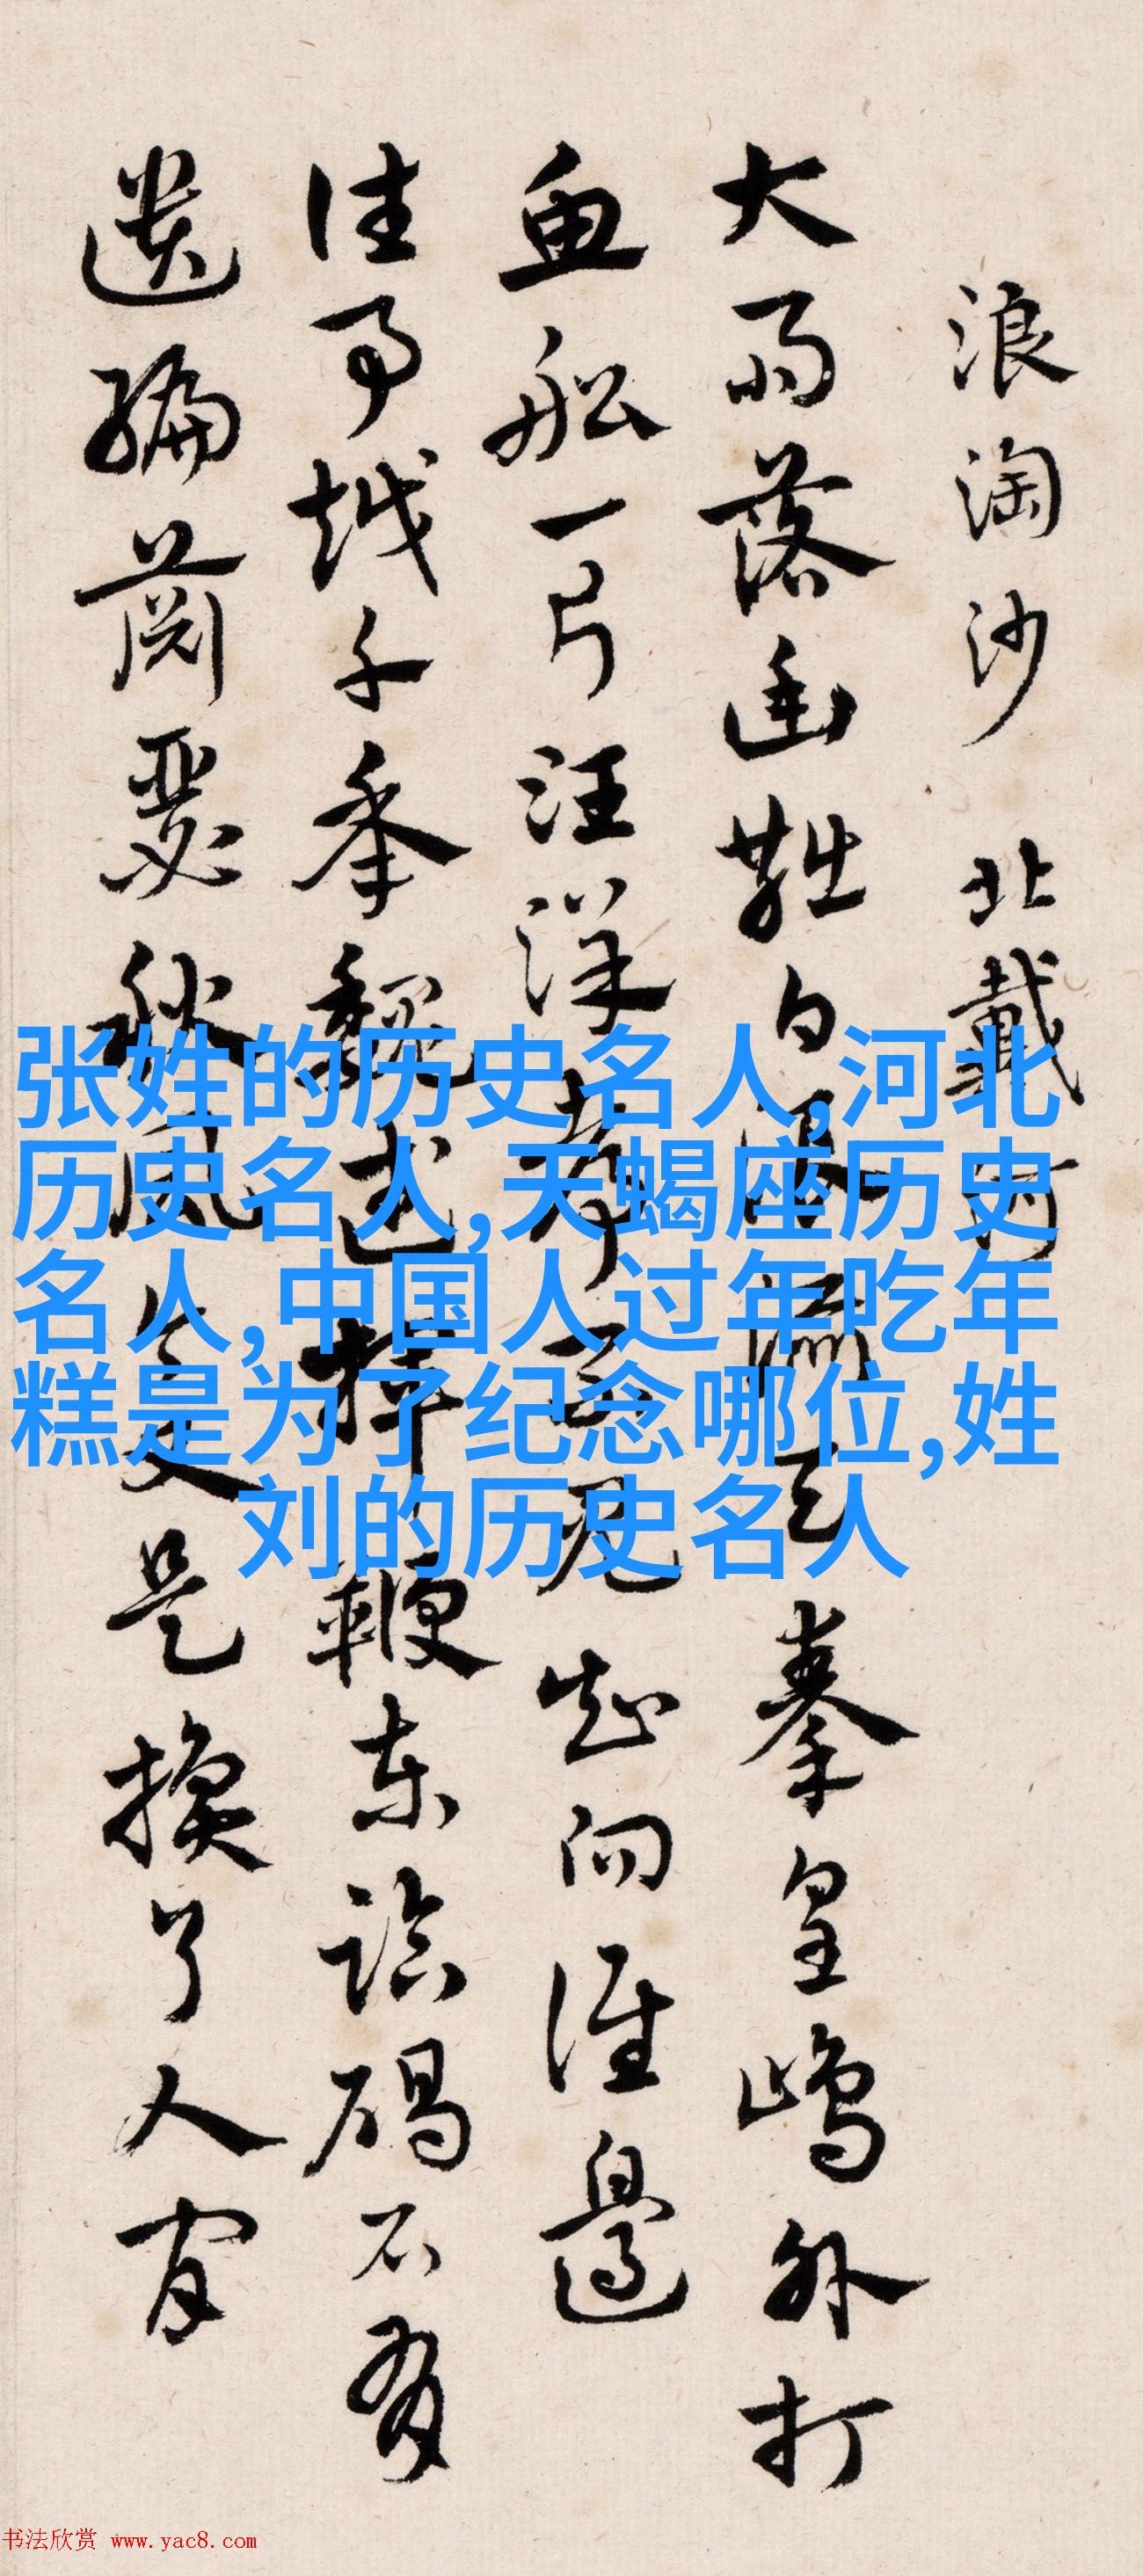 浪淘沙 北戴河
大雨落幽燕白浪滔天秦皇島外打
魚船一片汪洋都不見知向誰邊
往事越千年魏武揮鞭東臨碣石有
遺編蕭瑟秋風今又是換了人間
张姓的历史名人,河北
历史名人,天蝎座历史
名人,中国人过年吃年
糕是为了纪念哪位,姓
刘的历史名人
书法欣赏 www.yac8.com